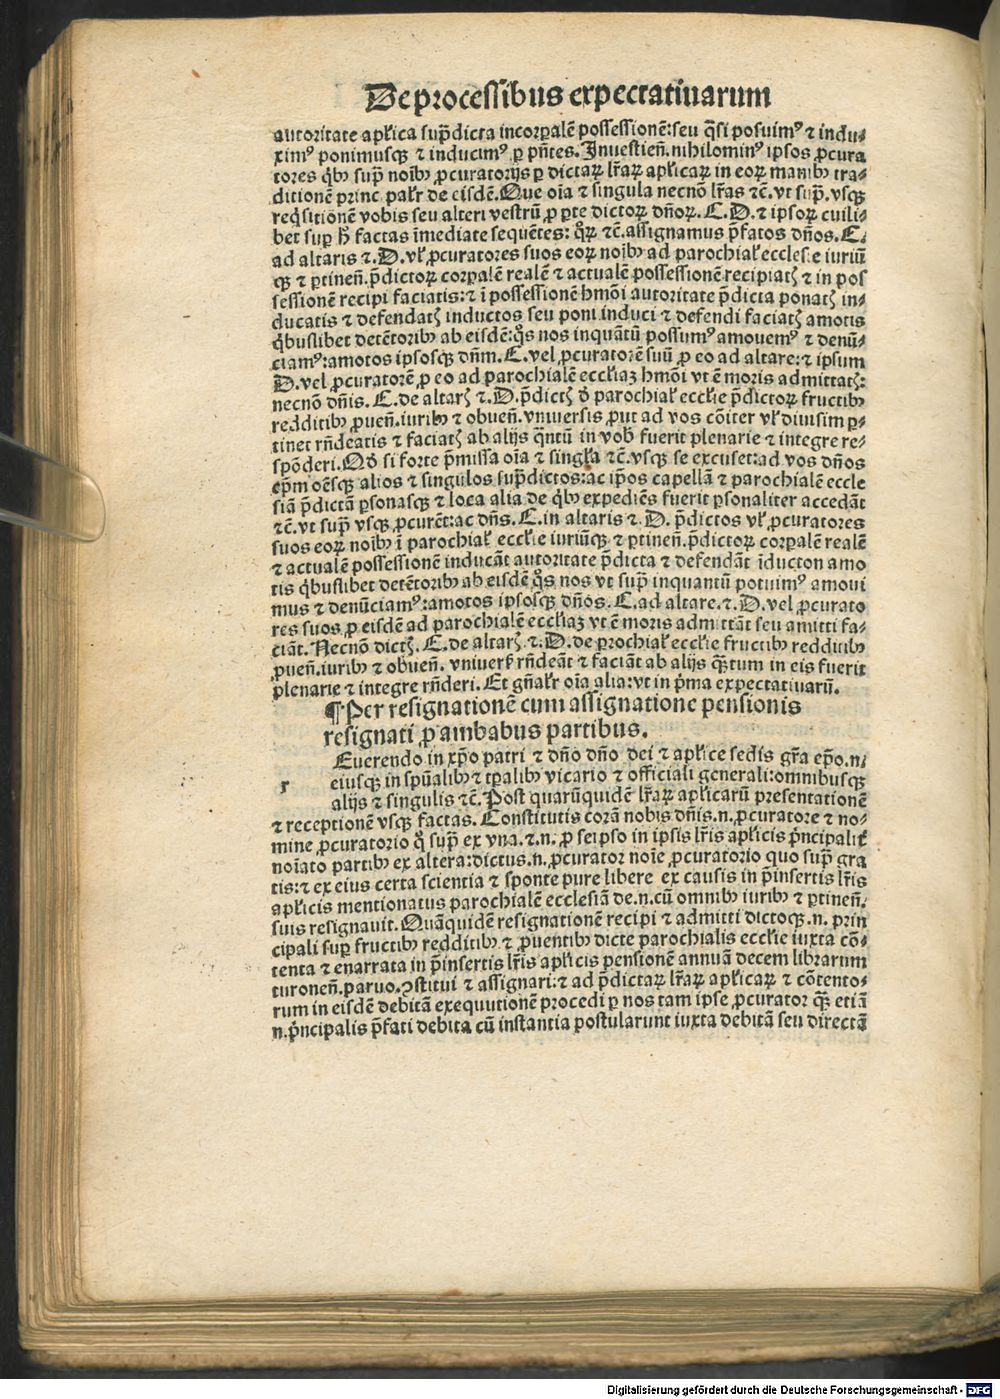 De processibus expectatiuarum
autoritate aplica sup̄dicta incorꝑalē possessionē:seu q̄si posuimꝰ ⁊ indu⸗
ximꝰ ponimusqꝫ ⁊ inducimꝰ ꝑ pn̄tes. Inuestien̄.nihilominꝰ ipsos ꝓcura
tores qͥbꝰ sup̄ noībꝰ ꝓcuratorijs ꝑ dictaꝝ lr̄aꝝ aplicaꝝ in eoꝝ manibꝰ tra⸗
ditionē princ palr̄ de eisdē. Que oīa ⁊ singula necnō lr̄as ⁊c̄. vt sup̄. vsqꝫ
reqͥsitionē vobis seu alteri vestrū ꝓ ꝑte dictoꝝ dn̄oꝝ. C. D. ⁊ ipsoꝝ cuili⸗
bet suꝑ h̄ factas īmediate sequētes: qꝝ ⁊c̄. assignamus p̄fatos dn̄os. C.
ad altaris ⁊. D. vl̓ ꝓcuratores suos eoꝝ noībꝰ ad parochial̓ ecclesie iuriū
qꝫ ⁊ ꝑtinen̄. p̄dictoꝝ corꝑalē realē ⁊ actualē possessionē recipiatꝭ ⁊ in pos
sessionē recipi faciatis:⁊ ī possessionē hmōi autoritate p̄dicta ponatꝭ in⸗
ducatis ⁊ defendatꝭ inductos seu poni induci ⁊ defendi faciatꝭ amotis
qͥbuslibet detētoribꝰ ab eisdē:qͦs nos inquātū possumꝰ amouemꝰ ⁊ denū⸗
ciamꝰ:amotos ipsosqꝫ dn̄m. C. vel ꝓcuratorē suū ꝓ eo ad altare:⁊ ipsum
D. vel ꝓcuratorē ꝓ eo ad parochialē eccl̓iaꝫ hmōi vt ē moris admittatꝭ:
necnō dn̄is. C. de altarꝭ ⁊. D. p̄dictꝭ ꝺ̄ parochial̓ eccl̓ie p̄dictoꝝ fructibꝰ
redditibꝰ ꝓuen̄.iuribꝰ ⁊ obuen̄. vniuersis ꝓut ad vos cōiter vl̓ diuisim ꝑ⸗
tinet rn̄deatis ⁊ faciatꝭ ab alijs qͣntū in vob̄ fuerit plenarie ⁊ integre re⸗
spōderi. Qꝺ si forte p̄missa oīa ⁊ singl̓a ⁊c̄. vsqꝫ se excuset:ad vos dn̄os
ep̄m oēsqꝫ alios ⁊ singulos sup̄dictos:ac ip̄os capellā ⁊ parochialē eccle
siā p̄dictā ꝑsonasqꝫ ⁊ loca alia de qͥbꝰ expediēs fuerit ꝑsonaliter accedāt
⁊c̄. vt sup̄ vsqꝫ ꝓcurēt:ac dn̄s. C. in altaris ⁊. D. p̄dictos vl̓ ꝓcuratores
suos eoꝝ noībꝰ ī parochial̓ eccl̓ie iuriūqꝫ ⁊ ꝑtinen̄. p̄dictoꝝ corꝑalē realē
⁊ actualē possessionē inducāt autoritate p̄dicta ⁊ defendāt īducton amo
tis qͥbuslibet detētoribꝰ ab eisdē qͦs nos vt sup̄ inquantū potuimꝰ amoui
mus ⁊ denūciamꝰ:amotos ipsosqꝫ dn̄os. C. ad altare. ⁊. D. vel ꝓcurato
res suos ꝓ eisdē ad parochialē eccl̓iaꝫ vt ē moris admittāt seu amitti fa⸗
ciāt. Necnō dictꝭ. C. de altarꝭ. ⁊. D. de parochial̓ eccl̓ie fructibꝰ redditibꝰ
ꝓuen̄.iuribꝰ ⁊ obuen̄. vniuers̓ rn̄deāt ⁊ faciāt ab alijs qͣꝫtum in eis fuerit
plenarie ⁊ integre rn̄deri. Et gn̄alr̄ oīa alia:vt in pͥma expectatiuarū.
¶ Per resignationē cum assignatione pensionis
resignati ꝓ ambabus partibus.
r Euerendo in xp̄o patri ⁊ dn̄o dn̄o dei ⁊ aplice sedis gr̄a ep̄o.n.
eiusqꝫ in spūalibꝰ ⁊ tp̄alibꝰ vicario ⁊ officiali generali:omnibusqꝫ
alijs ⁊ singulis ⁊c̄. Post quarūquidē lr̄aꝝ aplicarū presentationē
⁊ receptionē vsqꝫ factas. Constitutis corā nobis dn̄is.n. ꝓcuratore ⁊ no⸗
mine ꝓcuratorio qͦ sup̄ ex vna. ⁊.n. ꝓ seipso in ipsis lr̄is aplicis pͥncipalit̓
noīato partibꝰ ex altera:dictus.n. ꝓcurator noīe ꝓcuratorio quo sup̄ gra
tis:⁊ ex eius certa scientia ⁊ sponte pure libere ex causis in p̄insertis lr̄is
aplicis mentionatus parochialē ecclesiā de.n.cū omnibꝰ iuribꝰ ⁊ ꝑtinen̄.
suis resignauit. Quāquidē resignationē recipi ⁊ admitti dictoqꝫ.n. prin
cipali suꝑ fructibꝰ redditibꝰ ⁊ ꝓuentibꝰ dicte parochialis eccl̓ie iuxta cō⸗
tenta ⁊ enarrata in p̄insertis lr̄is aplicis pensionē annuā decem librarum
turonen̄. paruo. ꝯstitui ⁊ assignari:⁊ ad p̄dictaꝝ lr̄aꝝ aplicaꝝ ⁊ cōtento⸗
rum in eisdē debitā exequutionē procedi ꝑ nos tam ipse ꝓcurator qͣꝫ etiā
n. pͥncipalis p̄fati debita cū instantia postularunt iuxta debitā seu directā
Digitalisierung gefördert durch die Deutsche Forschungsgemeinschaft - DFG